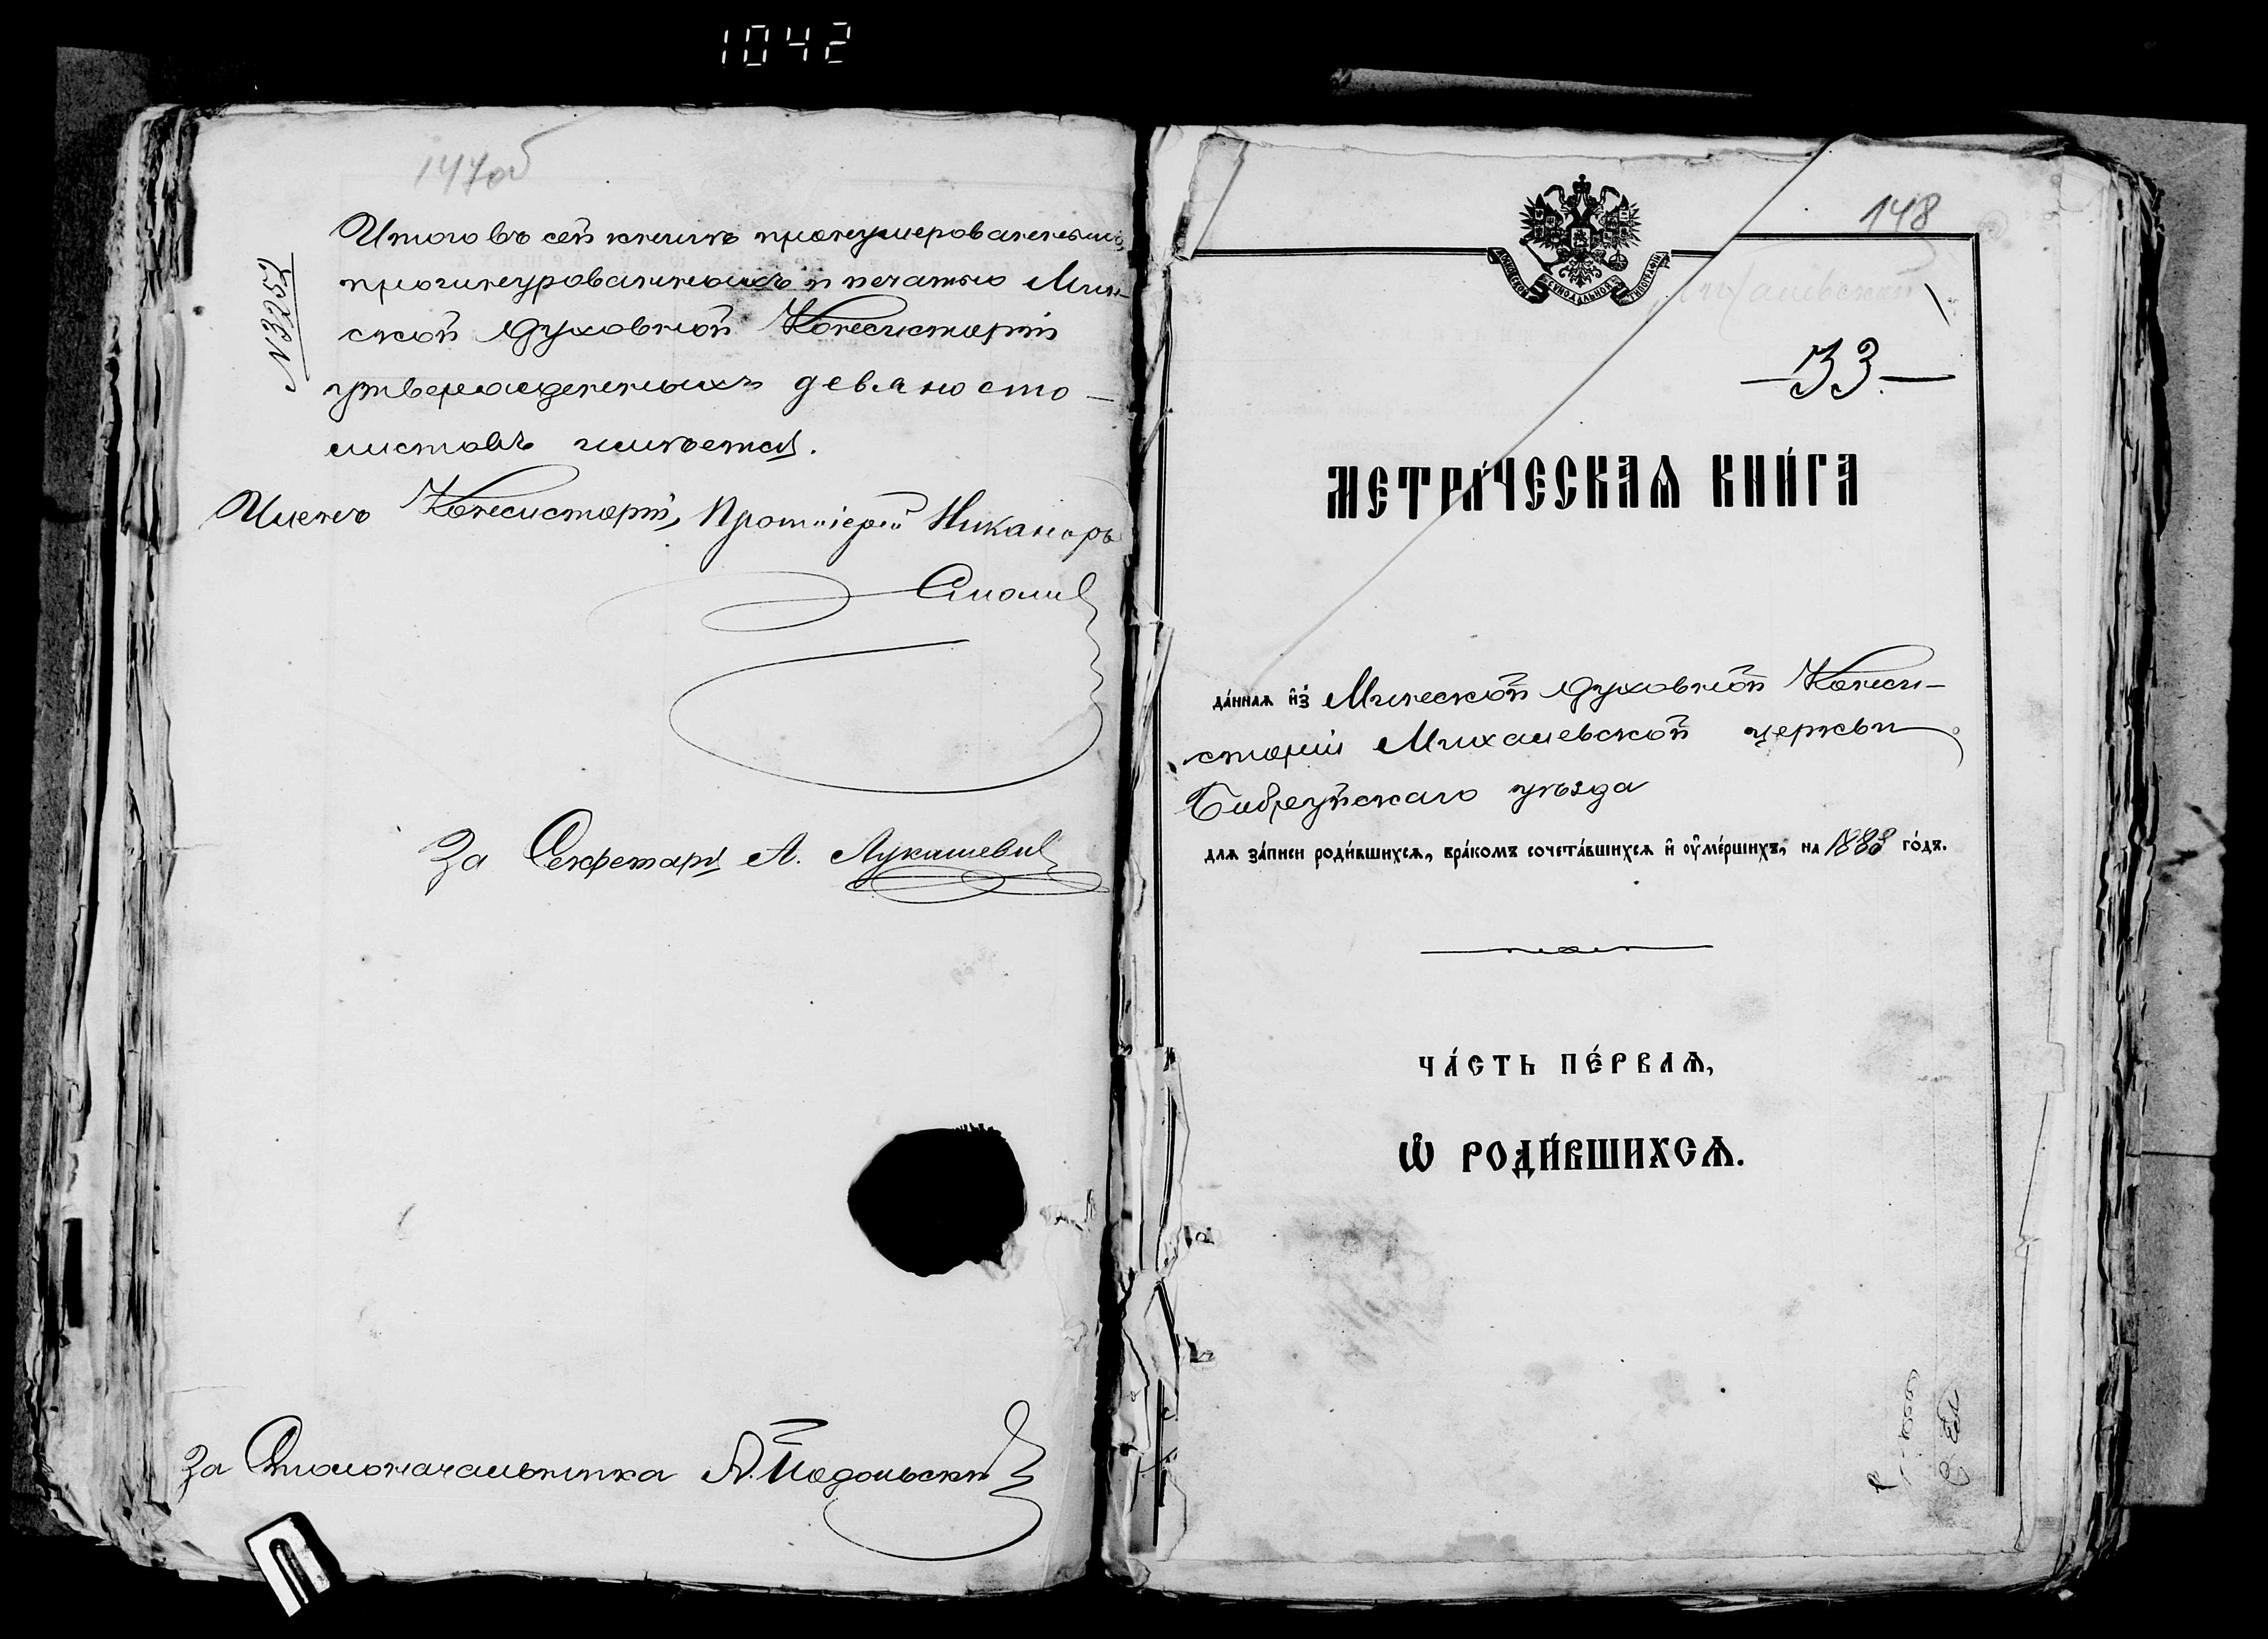 1042
147об
№ 3252
Итого въ сей книгѣ пронумерованныхъ,
прошнурованныхъ и печатью Мин-
ской Духовной Консисторіи
утвержденныхъ девяносто —
листовъ имѣется.
Членъ Консисторіи, Протоіерей Никаноръ
Смоличъ
За Секретаря А. Лукашевичъ
За Столоначальника А. Подольскій
148
МОСКОВСКОЙ СѴНОДАЛЬНОЙ ТИПОГРАФІИ
— 33. —
МЕТРИ́ЧЕСКАѦ КНИ́ГА
да́ннаѧ и҆з̾ Минской Духовной Конси-
сторіи Михалевской церкви
Бобруйскаго уѣзда
для за́писи роди́вшихсѧ, бра́комъ сочета́вшихсѧ и҆ оу҆ме́ршихъ, на 1888 го́дъ.
ЧА́СТЬ ПЕ́РВАѦ,
Ѽ РОДИ́ВШИХСѦ.